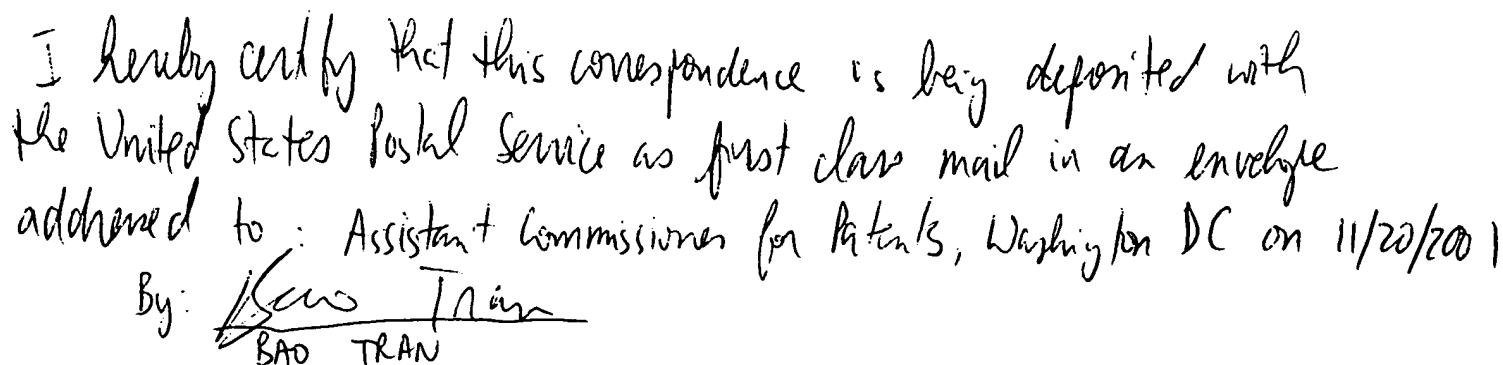 I hereby certify that this correspondence is being deposited with
the United States Postal Service as first class mail in an envelope
addressed to: Assistant Commissioner for Patents, Washington DC on 11/20/2001
By: Bao Tran
BAO TRAN